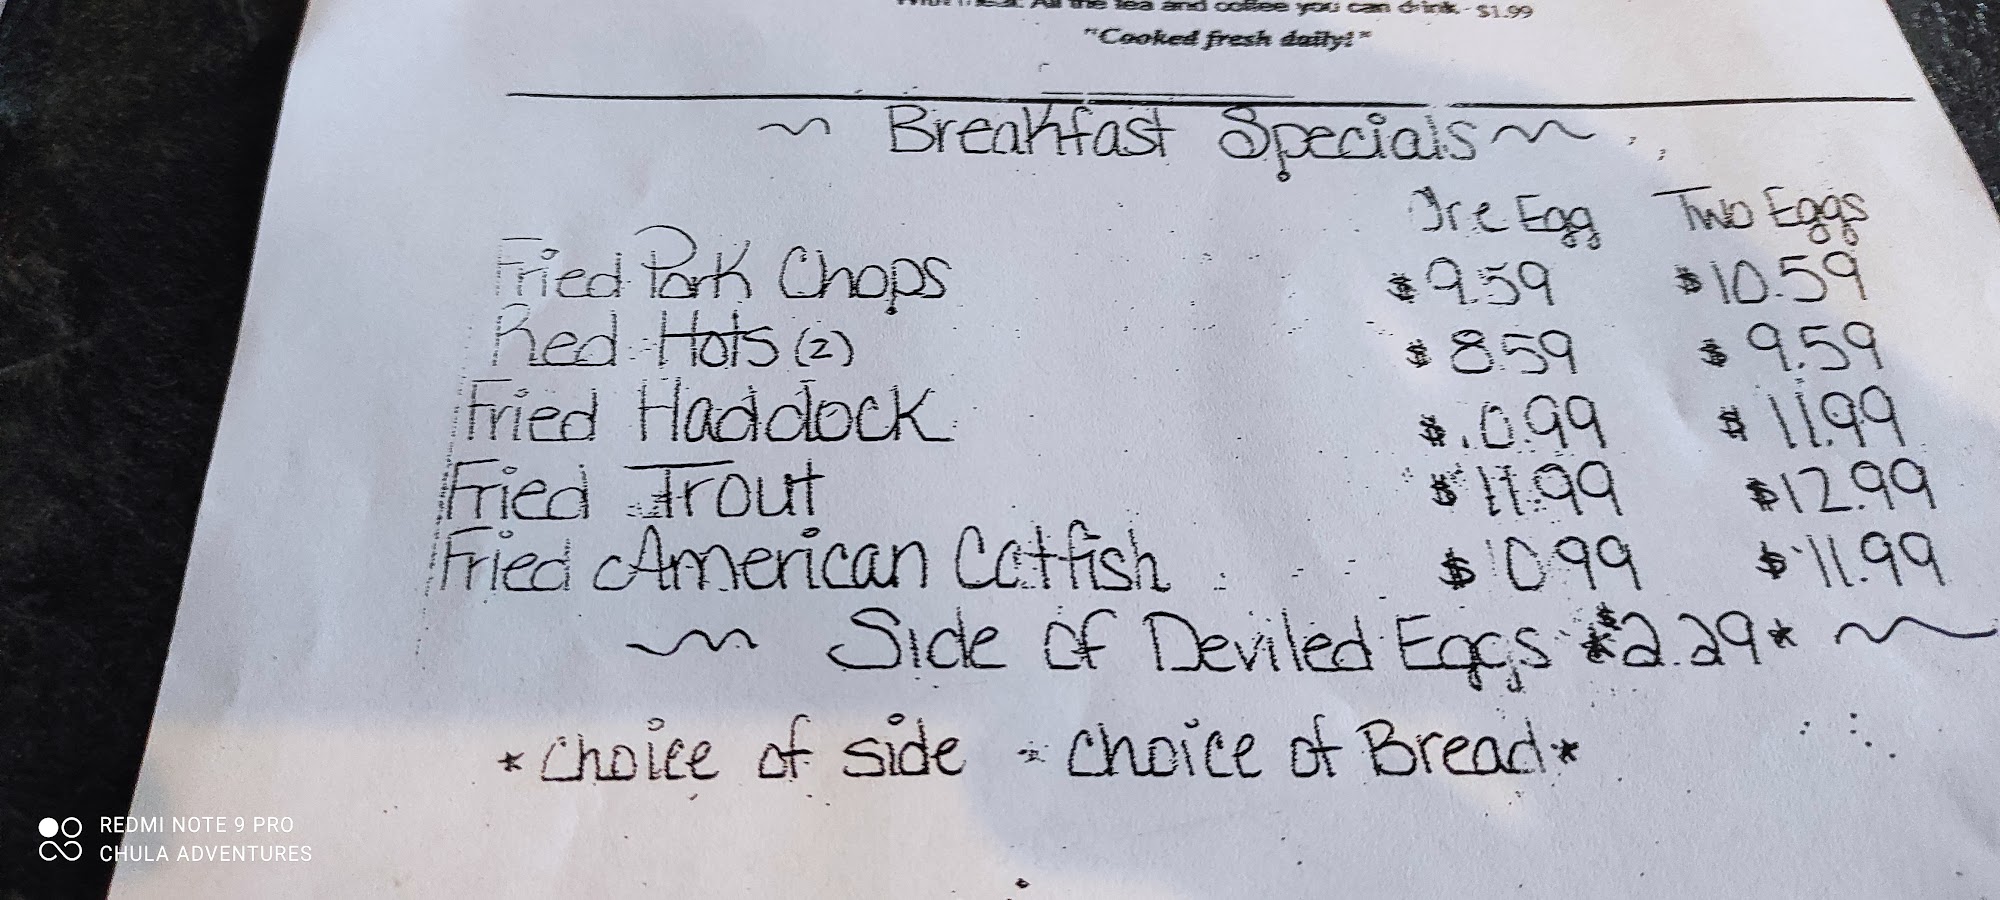 With meal: All the tea and coffee you can drink - $1.99
"Cooked fresh daily!"
~ Breakfast Specials ~
One Egg Two Eggs
Fried Pork Chops $9.59 $10.59
Red Hots (2) $8.59 $9.59
Fried Haddock $10.99 $11.99
Fried Trout $11.99 $12.99
Fried American Catfish $10.99 $11.99
~ Side of Deviled Eggs *$2.29* ~
*Choice of side * Choice of Bread*
REDMI NOTE 9 PRO
CHULA ADVENTURES